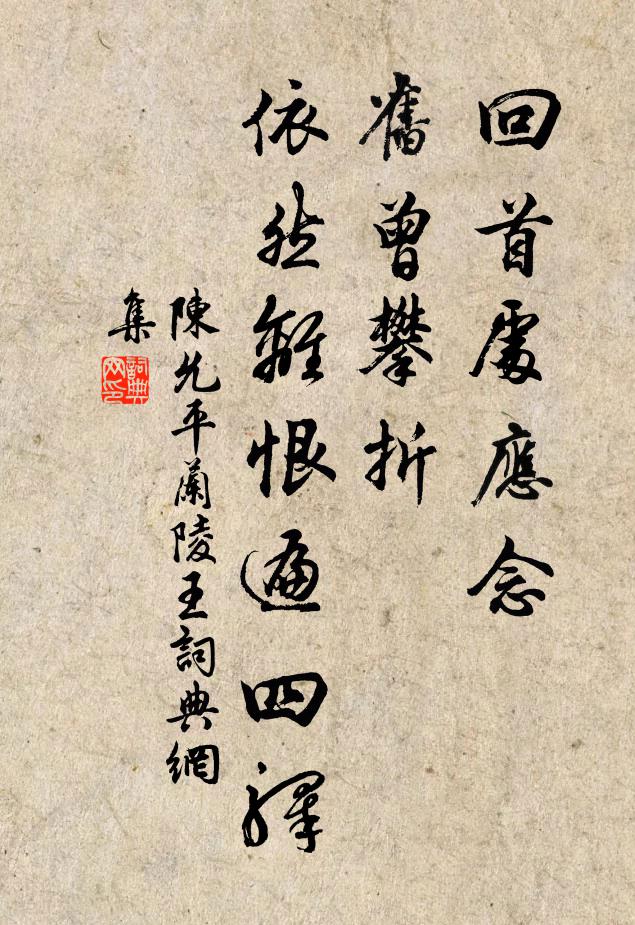 回首處應念
舊曾攀折
依然離恨遍四驛
陳允平蘭陵王詞典網
集
詞典網印